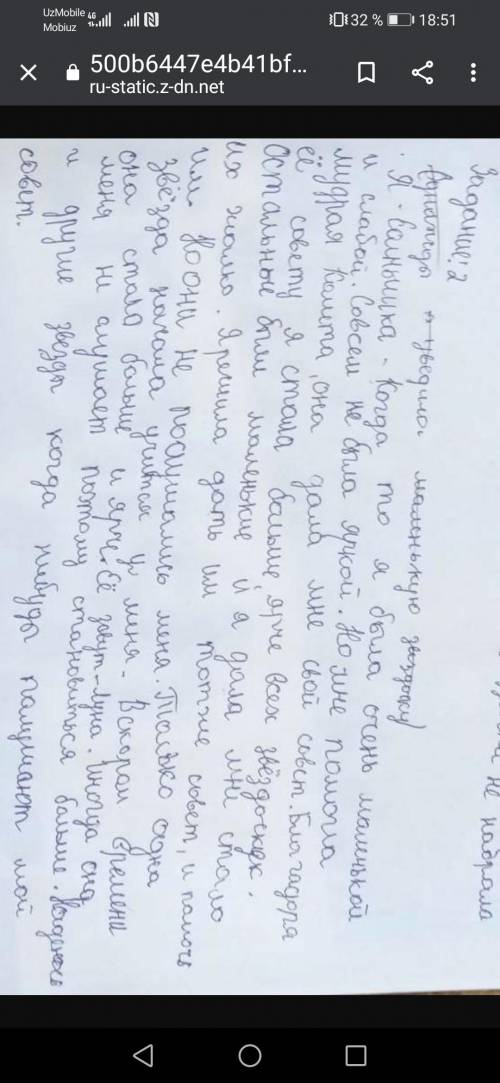 UzMobile 4G
Mobiuz
32 % 18:51
500b6447e4b41bf…
ru-static.z-dn.net
не набрала
Задание: 2
увидила маленькую звездочку
. Я - Солнышка - Когда то я была очень маленькой
и слабой. Совсем не была яркой. Но мне помогла
мудрая Комета, она дала мне свой совет. Благадоря
её совету я стала больше, ярче всех звёздочек.
Остальные были маленькие и я дала мне стало
их жалко. Я решила дать им тотже совет, и памочь
им. Но они не паслушались меня. Только одна
звёзда начала учиться у меня. Вскором времени
она стала больше и ярче. Её завут - Луна. Иногда она
меня не слушает поэтому становиться больше. Надеюсь
и другие звезды когда нибудь паслушают мой
совет.